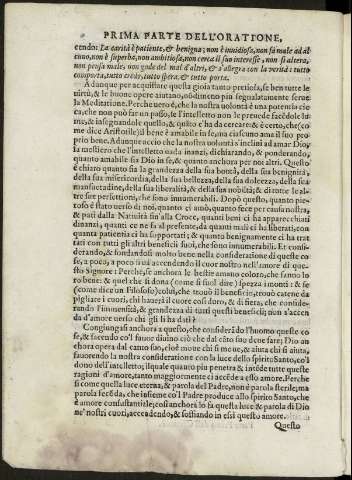 PRIMA PARTE DELL'ORATIONE,
cendo: La carità è patiente, & benigna; non è inuidiosa, non fà male ad al
cuno, non è superba, non ambitiosa, non cerca il suo interesse, non si altera,
non pensa male, non gode del mal d'altri, & s'allegra con la verità: tutto
comporta, tutto crede, tutto spera, & tutto porta.
Adunque per acquistare questa gioia tanto pretiosa, se ben tutte le
uirtù, & le buone opere aiutano, nōdimeno più segnalatamente serue
la Meditatione. Perche uero è, che la nostra uolontà è una potentia cie
ca, che non può far un passo, se l'intelletto non le precede facēdole lu
me, & insegnandole quello, & quāto è
me dice Aristotile) il bene è amabile in se, ma ciascuno ama il suo pro
prio bene. Adunque accio che la nostra uolontà s'inclini ad amar Dio,
fa mestiero che l'intelletto uada inanzi, dichiarando, & ponderando,
quanto amabile sia Dio in se, & quanto anchora per noi altri. Questo
è chiaro quanto sia la grandezza della sua bontà, della sua benignità,
della sua misericordia, della sua bellezza, della sua dolcezza, della sua
mansuetudine, della sua liberalità, & della sua nobiltà; & di tutte le al-
tre sue perfettioni, che sono innumerabili. Dopò questo, quanto pie-
toso è stato uerso di noi, quanto ci amò, quanto fece per causa nostra,
& patì dalla Natiuità fin'alla Croce, quanti beni ci ha apparecchiati
dinanzi, quanti ce ne fa al presente, da quanti mali ci ha liberati, con
quanta patientia ci ha sopportati; & quanto benignamente ci ha trat
tati con tutti gli altri beneficij suoi, che sono innumerabili. Et consi-
derando, & fondandosi molto bene nella consideratione di queste co
se, a poco, a poco si uà accendendo il cuor nostro nell'amore di que-
sto Signore: Perche, se anchora le bestie amano coloro, che fanno lo
ro bene: & quel che ti dona (come si suol dire) spezza i monti: & se
(come dice un Filosofo) colui, che trouò il beneficio, trouò catene da
pigliare i cuori, chi hauerà il cuore così duro, & di fiera, che conside-
rando l'immensità, & grandezza di tutti questi beneficij; non s'accen
da d'amore uerso chi gli li ha dati?
Congiungasi anchora a questo, che considerādo l'huomo queste co
se, & facendo co'l fauor diuino ciò che dal cāto suo deue fare; Dio an
chora opera dal canto suo, cioè moue chi si moue, & aiuta chi si aiuta,
fauorendo la nostra consideratione con la luce dello spirito Santo, co'l
dono dell'intelletto; ilquale quanto piu penetra, & intēde tutte queste
ragioni d'amore, tanto maggiormente ci accēde a esso amore. Perche
si come quella luce eterna, & parola del Padre, non è parola sterile; ma
parola fecōda, che insieme co'l Padre produce allo spirito Santo, che
è amore consustantiale; così anchora lo fa questa luce, & parola di Dio
ne' nostri cuori, accendendo, & soffiando in essi questo amore.
Questo